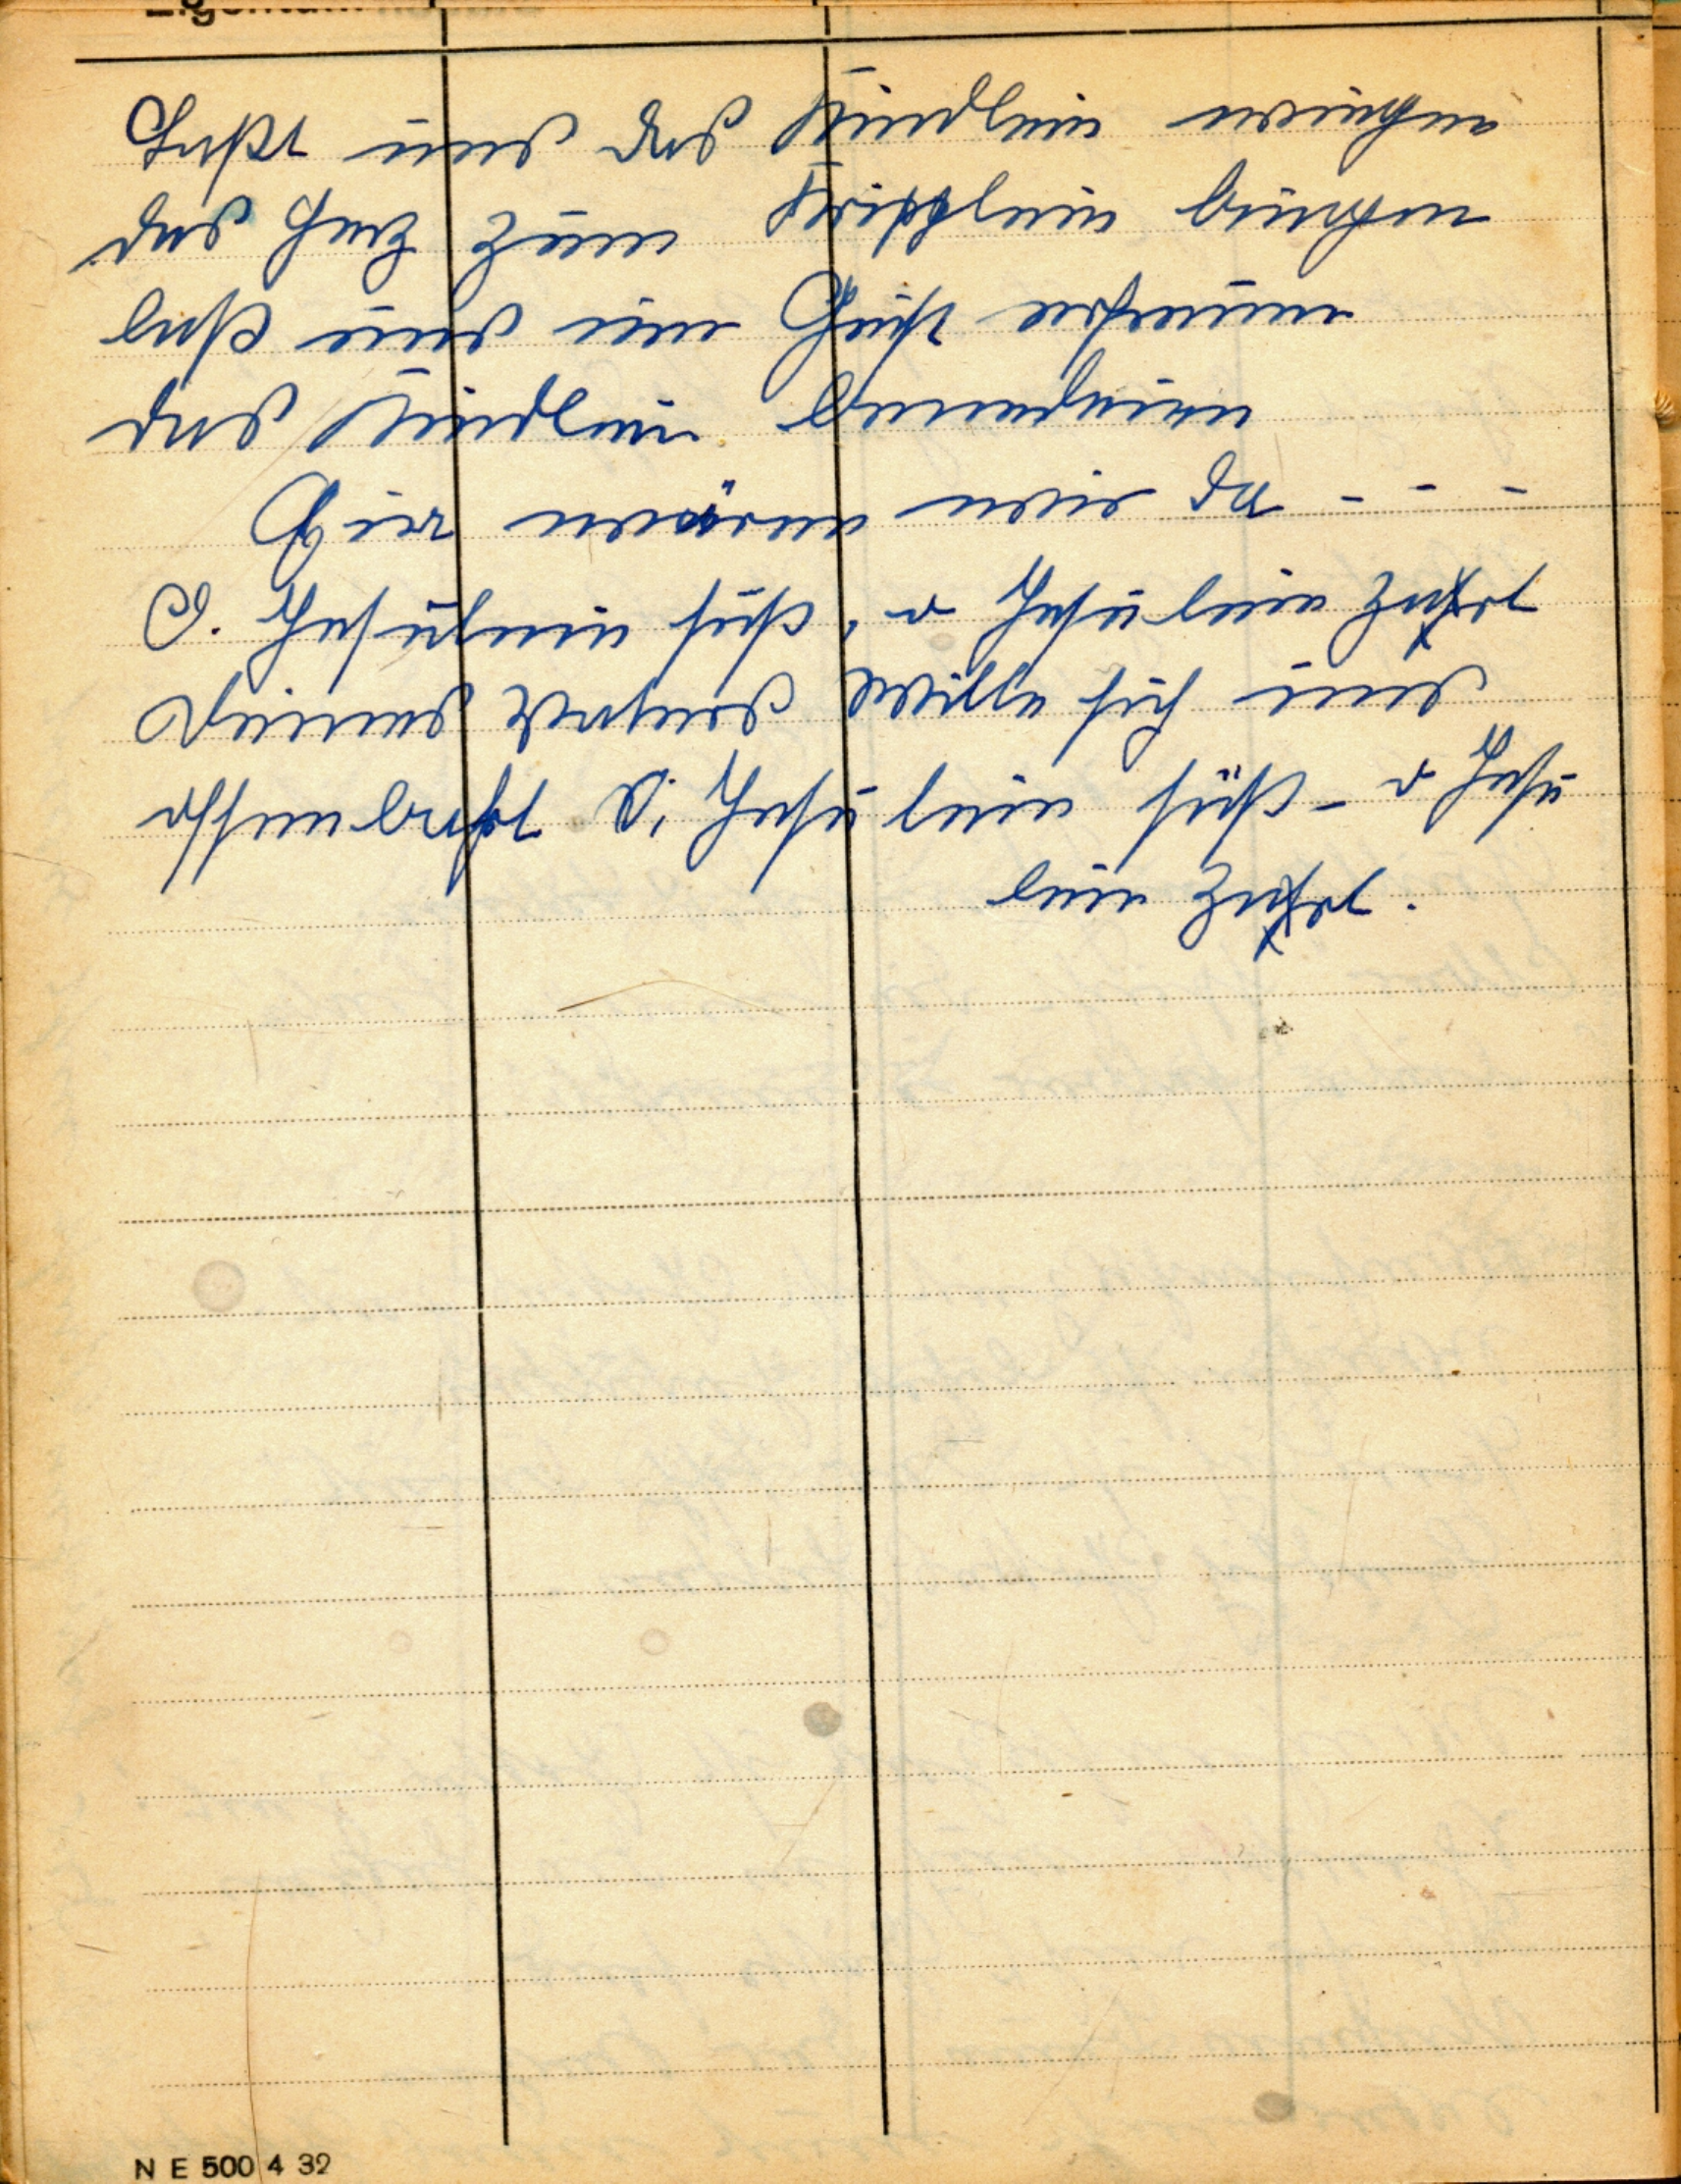 Laßt uns das Kindlein wiegen
das Herz zum Kripplein biegen
laß uns im Geist erfreuen
das Kindlein benedeien
Hier wären wir da - - -
O. Jesulein süß, o Jesulein zart
Deines Vaters Wille sich uns
offenbart O, Jesulein süß - o Jesu
lein zart.
N E 500 4 32